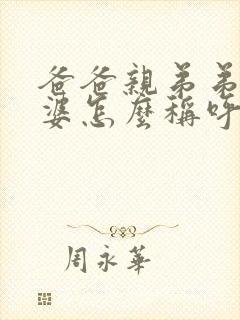 爸爸親弟弟
婆怎麽稱呼
周永華